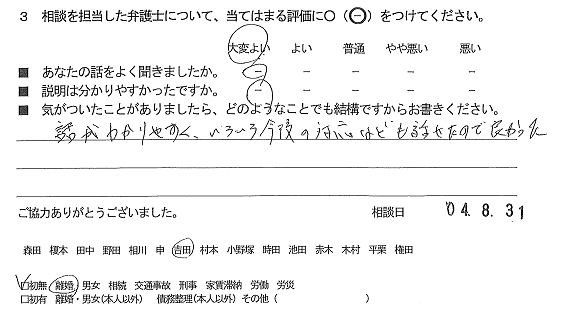 3 相談を担当した弁護士について、当てはまる評価に○（⊖）をつけてください。
大変よい よい 普通 やや悪い 悪い
■ あなたの話をよく聞きましたか。 － － － － －
■ 説明は分かりやすかったですか。 － － － － －
■ 気がついたことがありましたら、どのようなことでも結構ですからお書きください。
話がわかりやすく、いろいろ今後の対応なども話せたので良かった
ご協力ありがとうございました。 相談日 '04.8.31
森田 榎本 田中 野田 相川 申 吉田 村本 小野塚 時田 池田 赤木 木村 平栗 権田
□初無 離婚 男女 相続 交通事故 刑事 家賃滞納 労働 労災
□初有 離婚・男女(本人以外) 債務整理(本人以外) その他（ ）